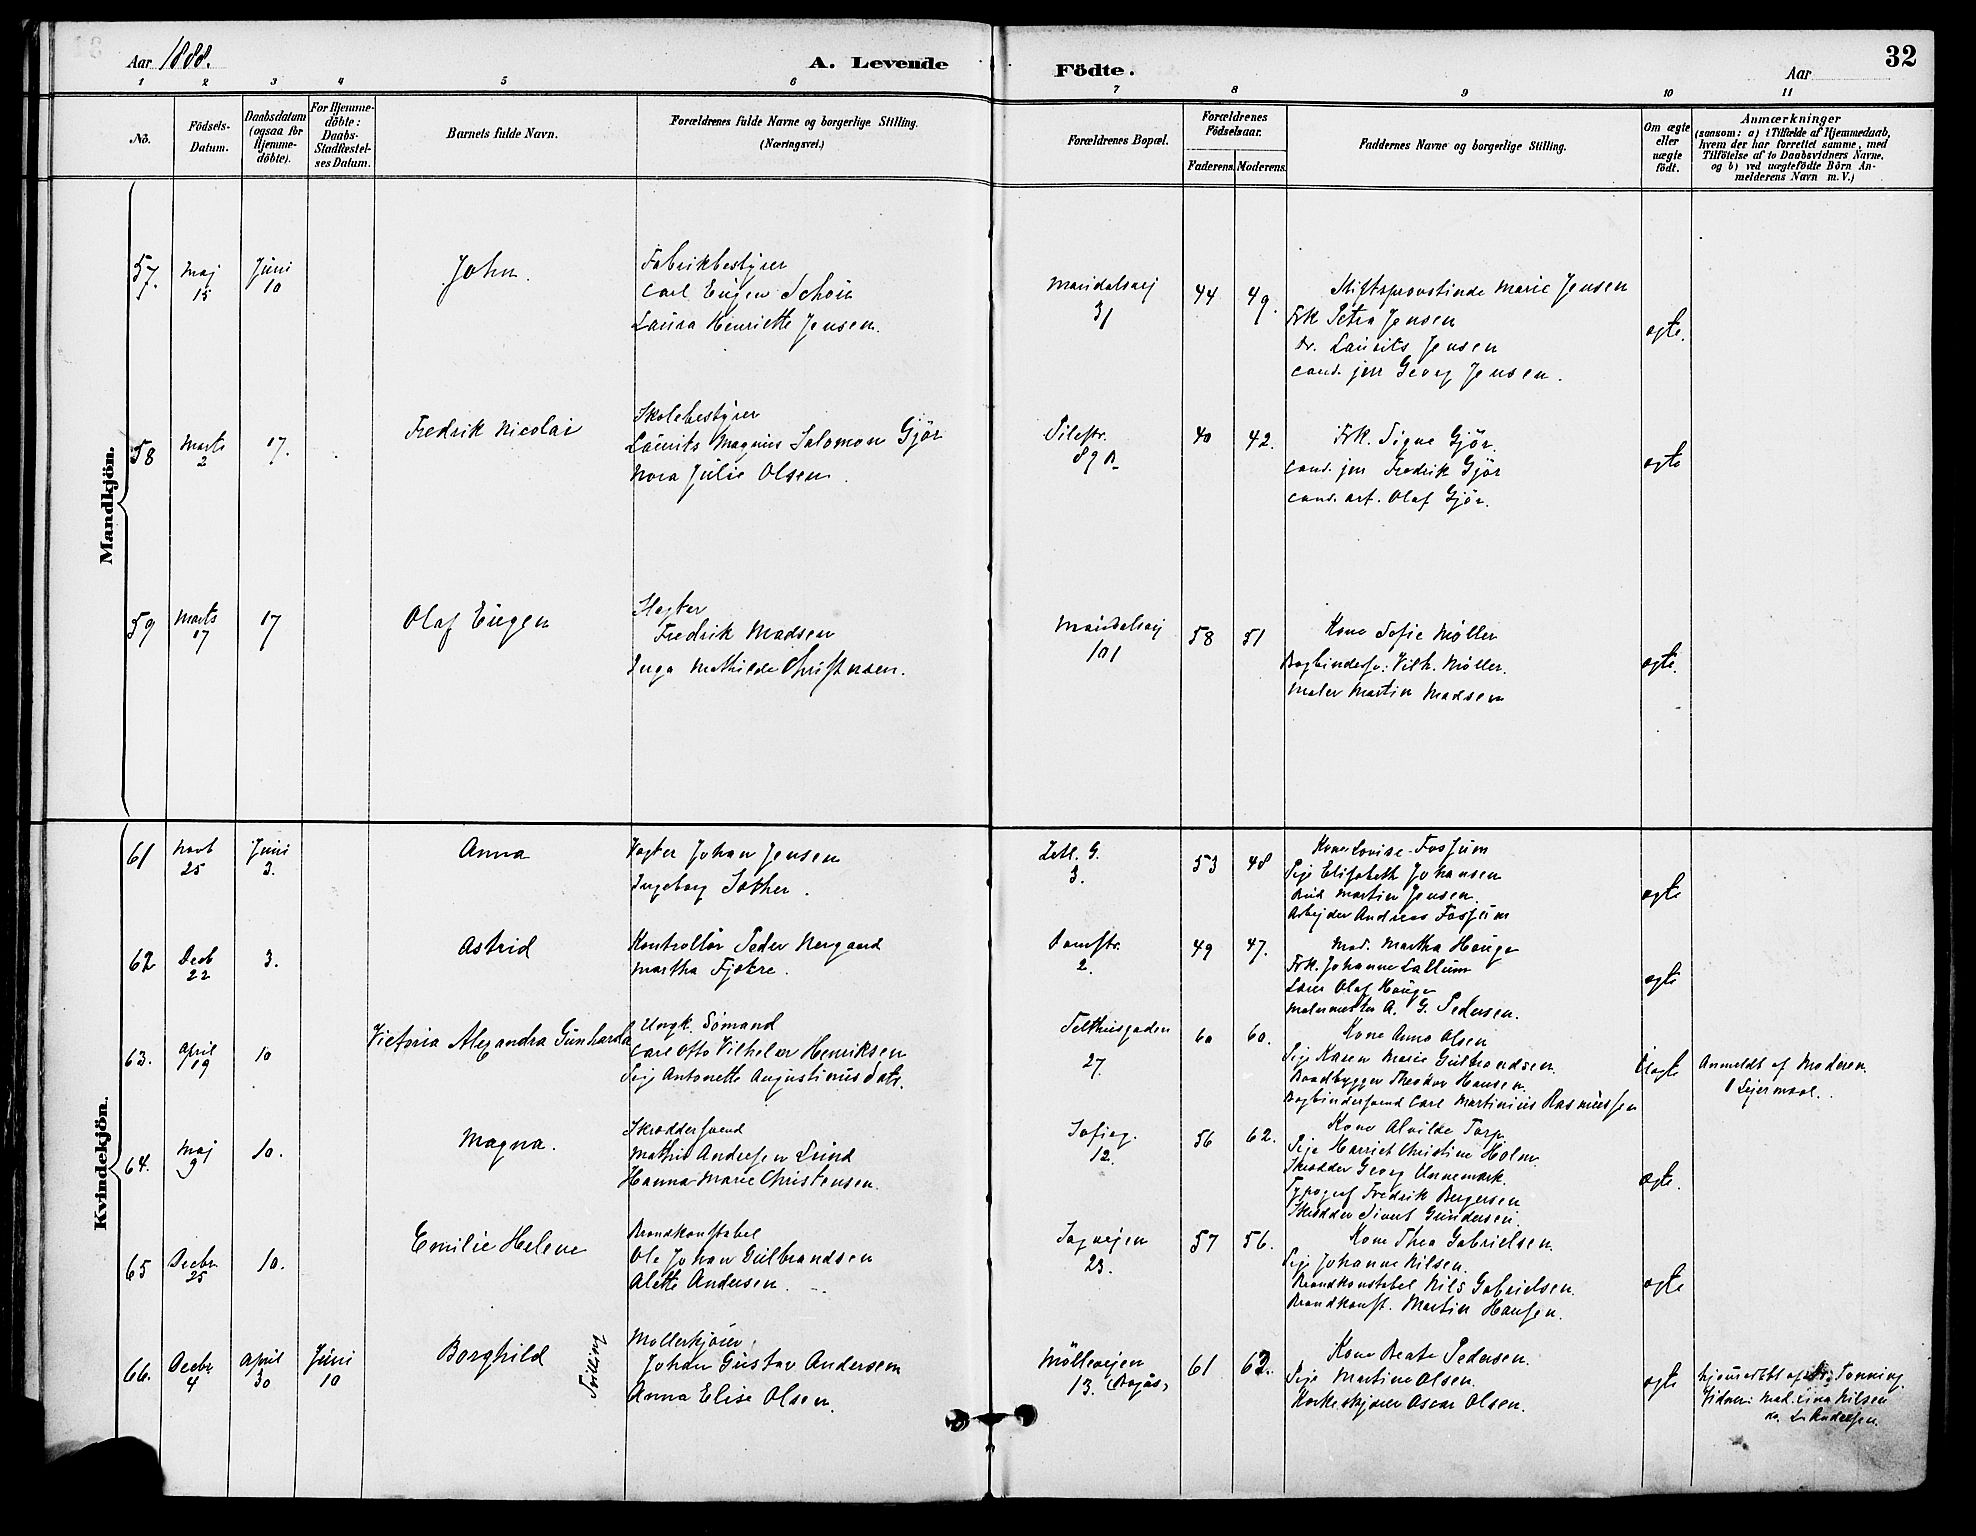 Aar 1888.
A. Levende
Födte.
Aar
32
1 2 3 4 5 6 7 8 9 10 11
No.
Födsels-Datum.
Daabsdatum (ogsaa for Hjemme-döbte).
For Hjemme-döbte: Daabs-Stadfæstel-ses Datum.
Barnets fulde Navn.
Forældrenes fulde Navne og borgerlige Stilling. (Næringsvei.)
Forældrenes Bopæl.
Forældrenes Födselsaar.
Faderens. Moderens.
Faddernes Navne og borgerlige Stilling.
Om ægte eller uægte födt.
Anmærkninger
(saasom: a) i Tilfælde af Hjemmedaab, hvem der har forrettet samme, med Tilföielse af to Daabsvidners Navne, og b) ved uægtefödte Börn An-melderens Navn m. V.)
Mandkjön.
57. Maj 15 Juni 10
John.
Fabrikbestyrer
Carl Eugen Schou
Laura Henriette Jensen.
Maridalsvej 31
44 49.
Stiftsprovstinde Marie Jensen
Frk Petra Jensen
Dr. Laurits Jensen
cand. jur Georg Jensen.
ægte.
58 Marts 2 17.
Fredrik Nicolai
Skolebestyrer
Laurits Magnus Salomon Gjör
Nora Julie Olsen.
Pilestr. 89
40 42.
Frk. Signe Gjör.
cand. jur Fredrik Gjör
cand. art. Olaf Gjör.
ægte
59 Marts 17 17
Olaf Eugen
Slagter
Fredrik Madsen
Inga Mathilde Christensen.
Maridalsvej 101
58 51
Kone Sofie Møller
Bogbindersv. Vilh. Møller.
Maler Martin Madsen
ægte.
Kvindekjön.
61 25 Juni 3.
Anna
Vogter Johan Jensen
Ingeborg Sæther.
3.
53 48
Kone Lovise Fossum
Pige Elisabeth Johansen
Martin Jensen.
Arbejder Andreas Fossum
ægte
62 Decb 22 3.
Astrid
Kontrollör Peder Nergaard
Martha Fjøtre.
Damstr. 2.
49 47.
Mad. Martha Hauge
Frk. Johanne Lallum
Lærer Olaf Hauge
Malermester A. G. Pedersen.
ægte
63. April 19 10
Victoria Alexandra Gunharda
Ungk. Sømand
Carl Otto Vilhelm Henriksen
Pige Antonette Augustinusdatr.
Telthusgaden 27
60 60.
Kone Anna Olsen
Pige Karen Marie Gulbrandsen.
Baadbygger Theodor Hansen.
Bogbindersvend Carl Martinius Rasmussen
Uægte
Anmeldt af Moderen.
1 Lejermaal.
64. Maj 9 10.
Magna.
Skræddersvend
Mathis Andresen Lund
Hanna Marie Christensen.
Sofieg. 12.
56 62.
Kone Alvilde Torp.
Pige Harriet Christine Holm.
Skrædder Georg Unnemark.
Typograf Fredrik Bergersen
Skrædder Sivert Gundersen.
ægte.
65 Decbr 25 10.
Emilie Helene
Brandkonstabel
Ole Johan Gulbrandsen
Alette Andersen.
Sagvejen 23.
57 56.
Kone Thea Gabrielsen.
Pige Johanne Nilsen.
Brandkonstabel Nils Gabrielsen.
Brandkonst. Martin Hansen.
ægte
66. Decbr 4 April 30 Juni 10
Borghild
Tvilling
Møllerkjører
Johan Gustav Andersen
Anna Elise Olsen.
Møllevejen 13.
61 62.
Kone Beate Pedersen.
Pige Martine Olsen.
Korkeskjører Oscar Olsen.
ægte
hjemmedöbt af Tonning.
Vidner: Mad. Lina Nilsen
do. L. Andersen.